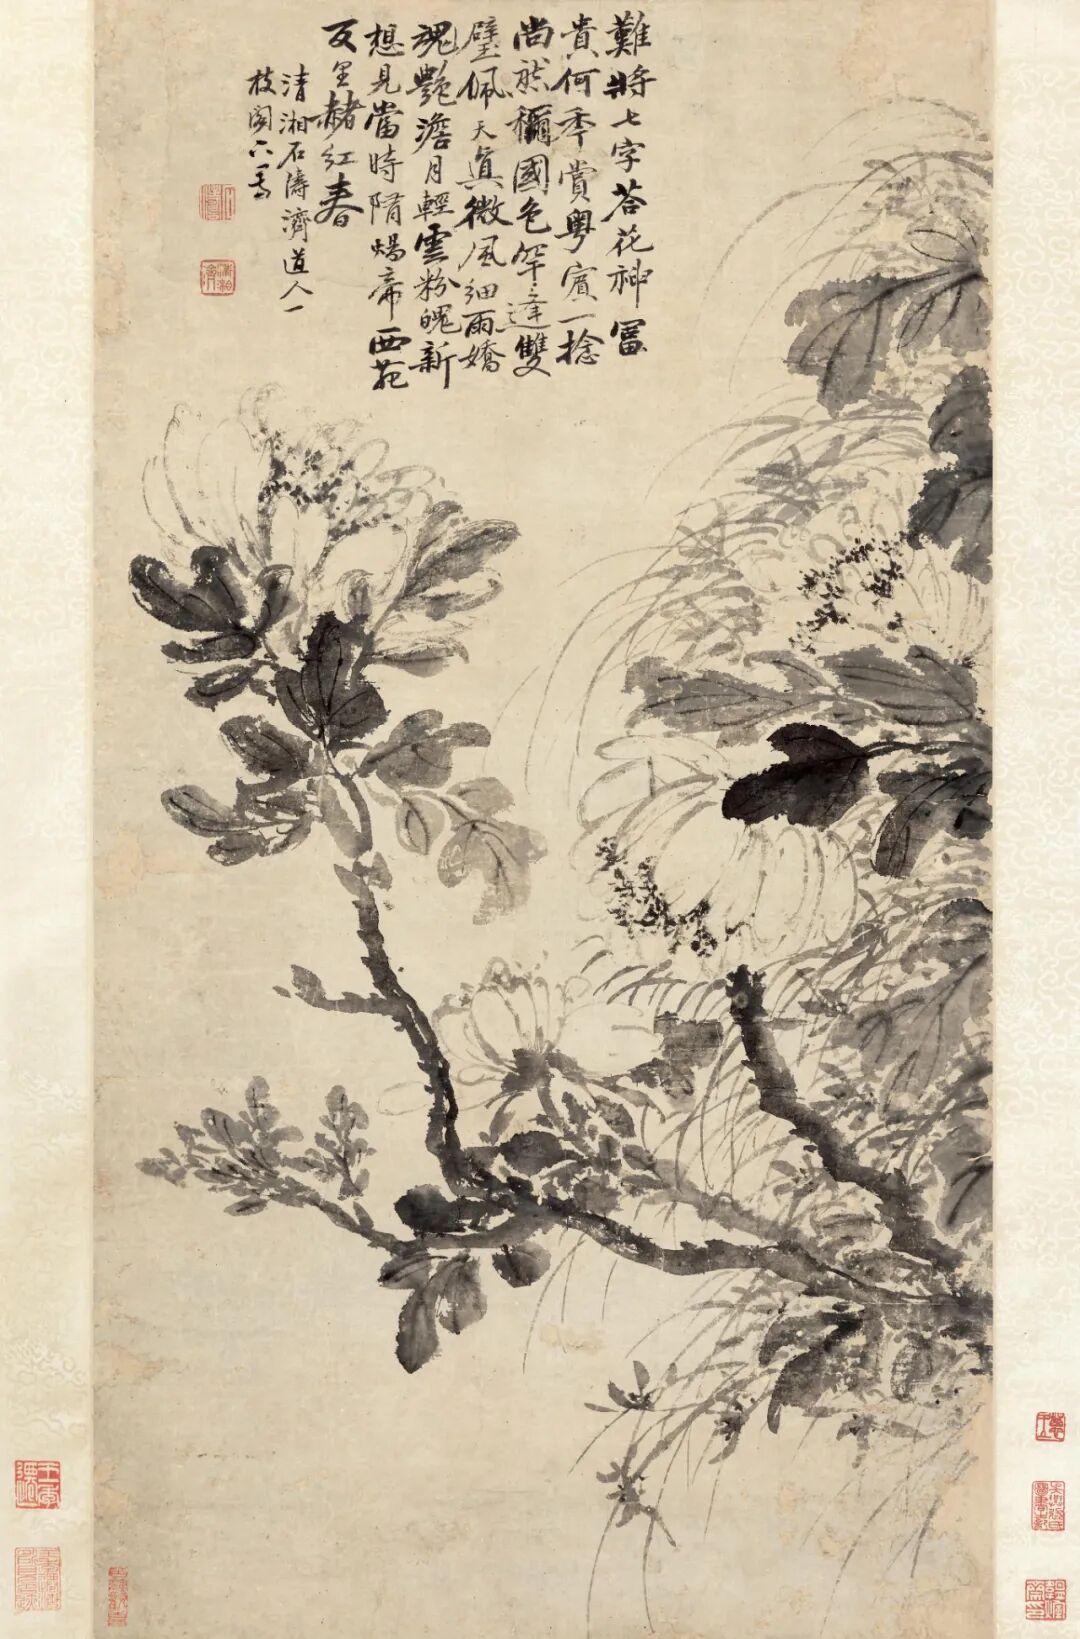 難將七字荅花神富
貴何秊賞粵賓一捻
尚然稱國色罕逢雙
璧佩天真微風細雨嬌
魂艷澹月輕雲粉魄新
想見當時隋煬帝西苑
百里赭紅春
清湘石濤濟道人一
枝閣下寫